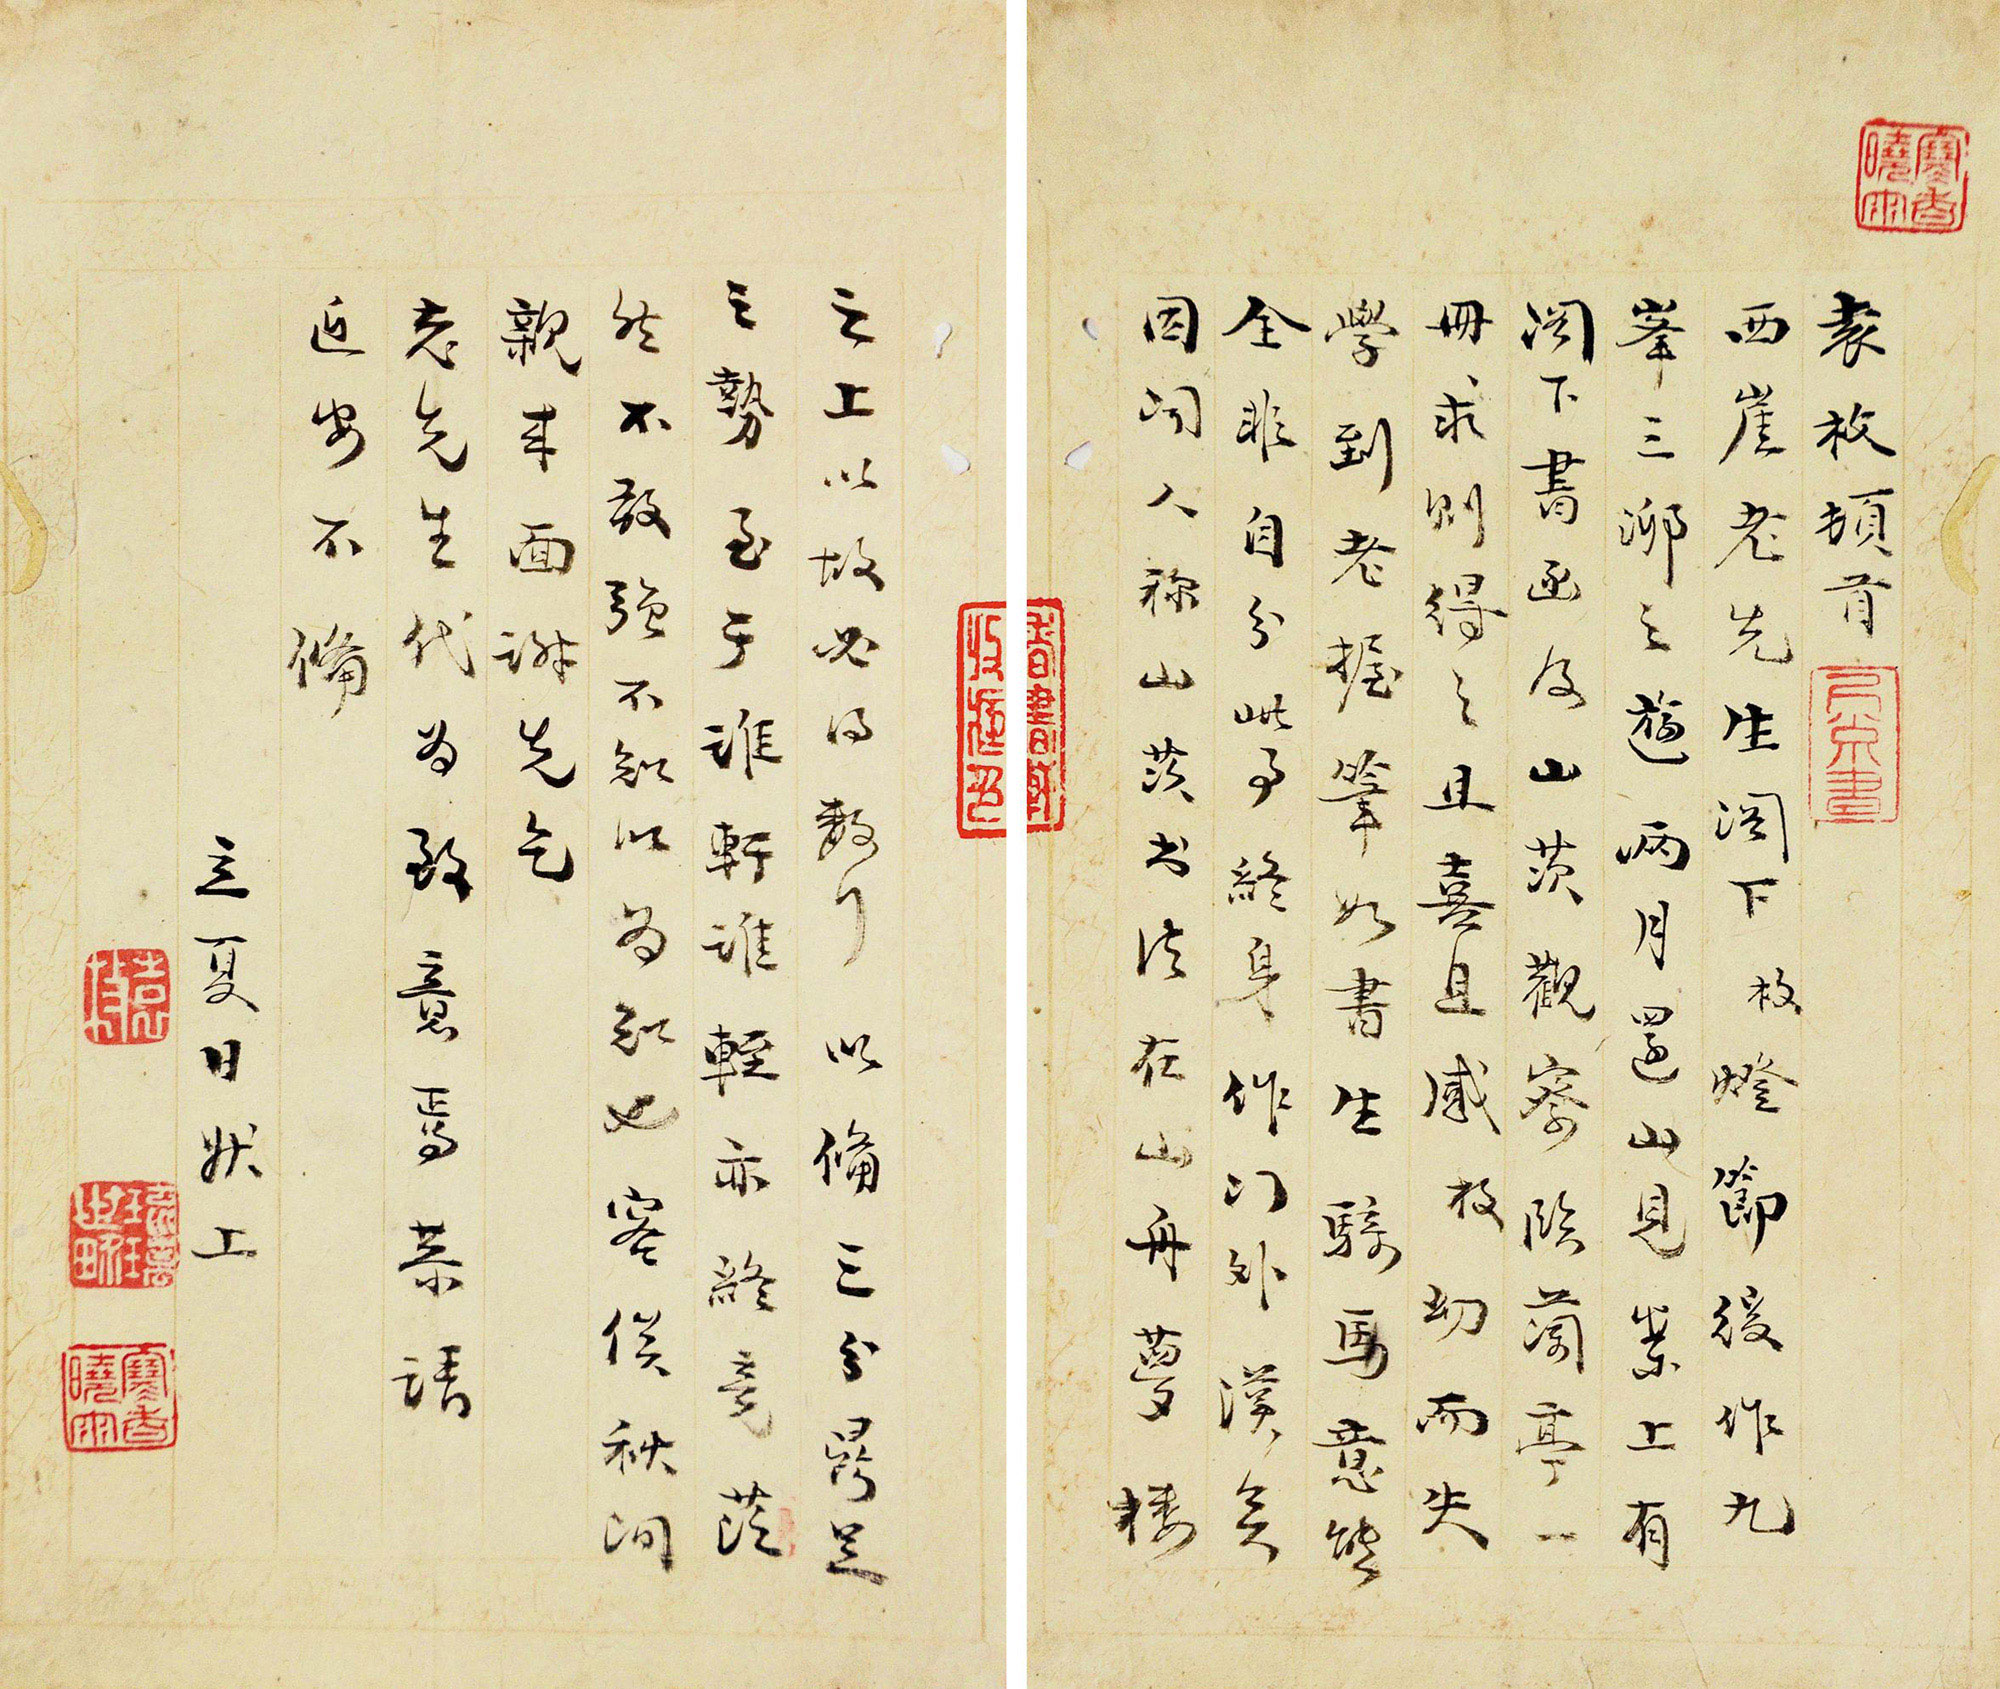 袁枚頓首
西崖老先生閣下枚燈節後作九
峯三泖之遊兩月還山見案上有
閣下書函及山茨觀察臨蘭亭一
冊求則得之且喜且感枚幼而失
學到老握筆如書生騎馬意態
全非自分此事終身作門外漢矣
因聞人称山茨書法在山舟夢樓
之上以故必得數行以備三分鼎足
之勢至于誰軒誰輊亦終竟茫
然不敢強不知以為知也容俟秋間
親來面謝先乞
老先生代為致意焉恭請
近安不備
立夏日狀上
寒香
曉雨